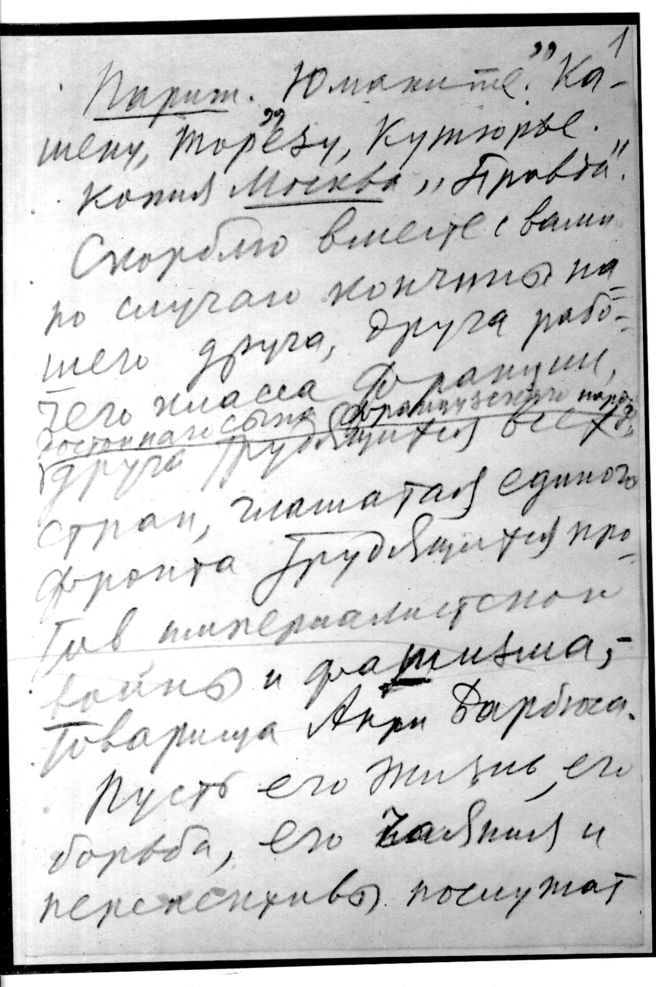 1
Париж. Юманите." Ка-
шену, "Торезу, Кутюрье.
Копия Москва „Правда".
Скорблю вместе с вами
по случаю кончины на-
шего друга, друга рабо-
чего класса Франции,
достойного сына французского народа,
друга трудящихся всех
стран, глашатая единого
фронта трудящихся про-
тив империалистской
войны и фашизма, –
товарища Анри Барбюса.
Пусть его жизнь, его
борьба, его чаяния и
перспективы послужат